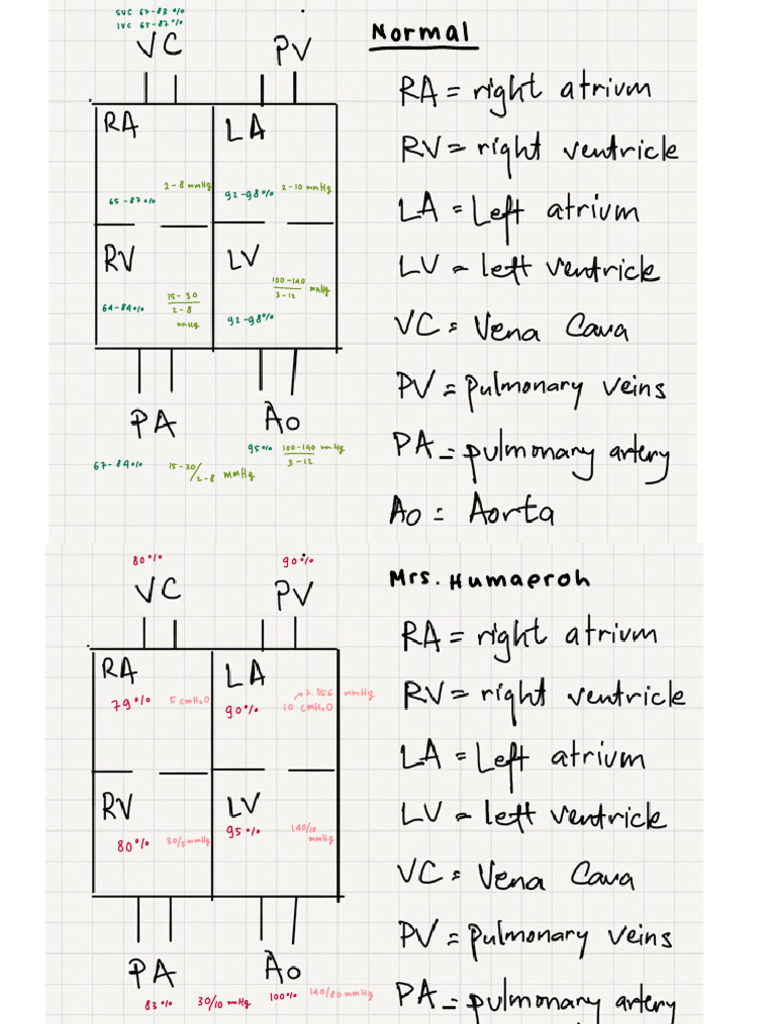 SVC 67-83 %
IVC 65-87 %
VC
PV
RA
LA
2-8 mmHg
65-87%
92-98%
2-10 mmHg
RV
LV
64-84%
15-30
2-8
mmHg
100-140
3-12
mmHg
92-98%
PA
Ao
67-84%
15-30/2-8 mmHg
95%
100-140 mmHg
3-12
Normal
RA = right atrium
RV = right ventricle
LA = Left atrium
LV = left ventricle
VC = Vena Cava
PV = pulmonary veins
PA = pulmonary artery
Ao = Aorta
80%
90%
VC
PV
RA
LA
79%
5 cmH2O
90%
→7.356 mmHg
10 cmH2O
RV
LV
80%
30/5 mmHg
95%
140/10
mmHg
PA
Ao
83%
30/10 mmHg
100%
140/80 mmHg
Mrs. Humaeroh
RA = right atrium
RV = right ventricle
LA = Left atrium
LV = left ventricle
VC = Vena Cava
PV = pulmonary veins
PA = pulmonary artery